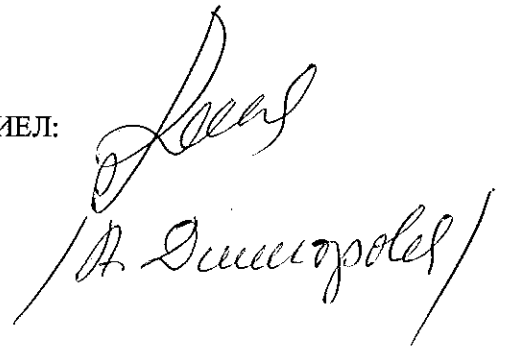 ИЕЛ:
/А. Димитрова/